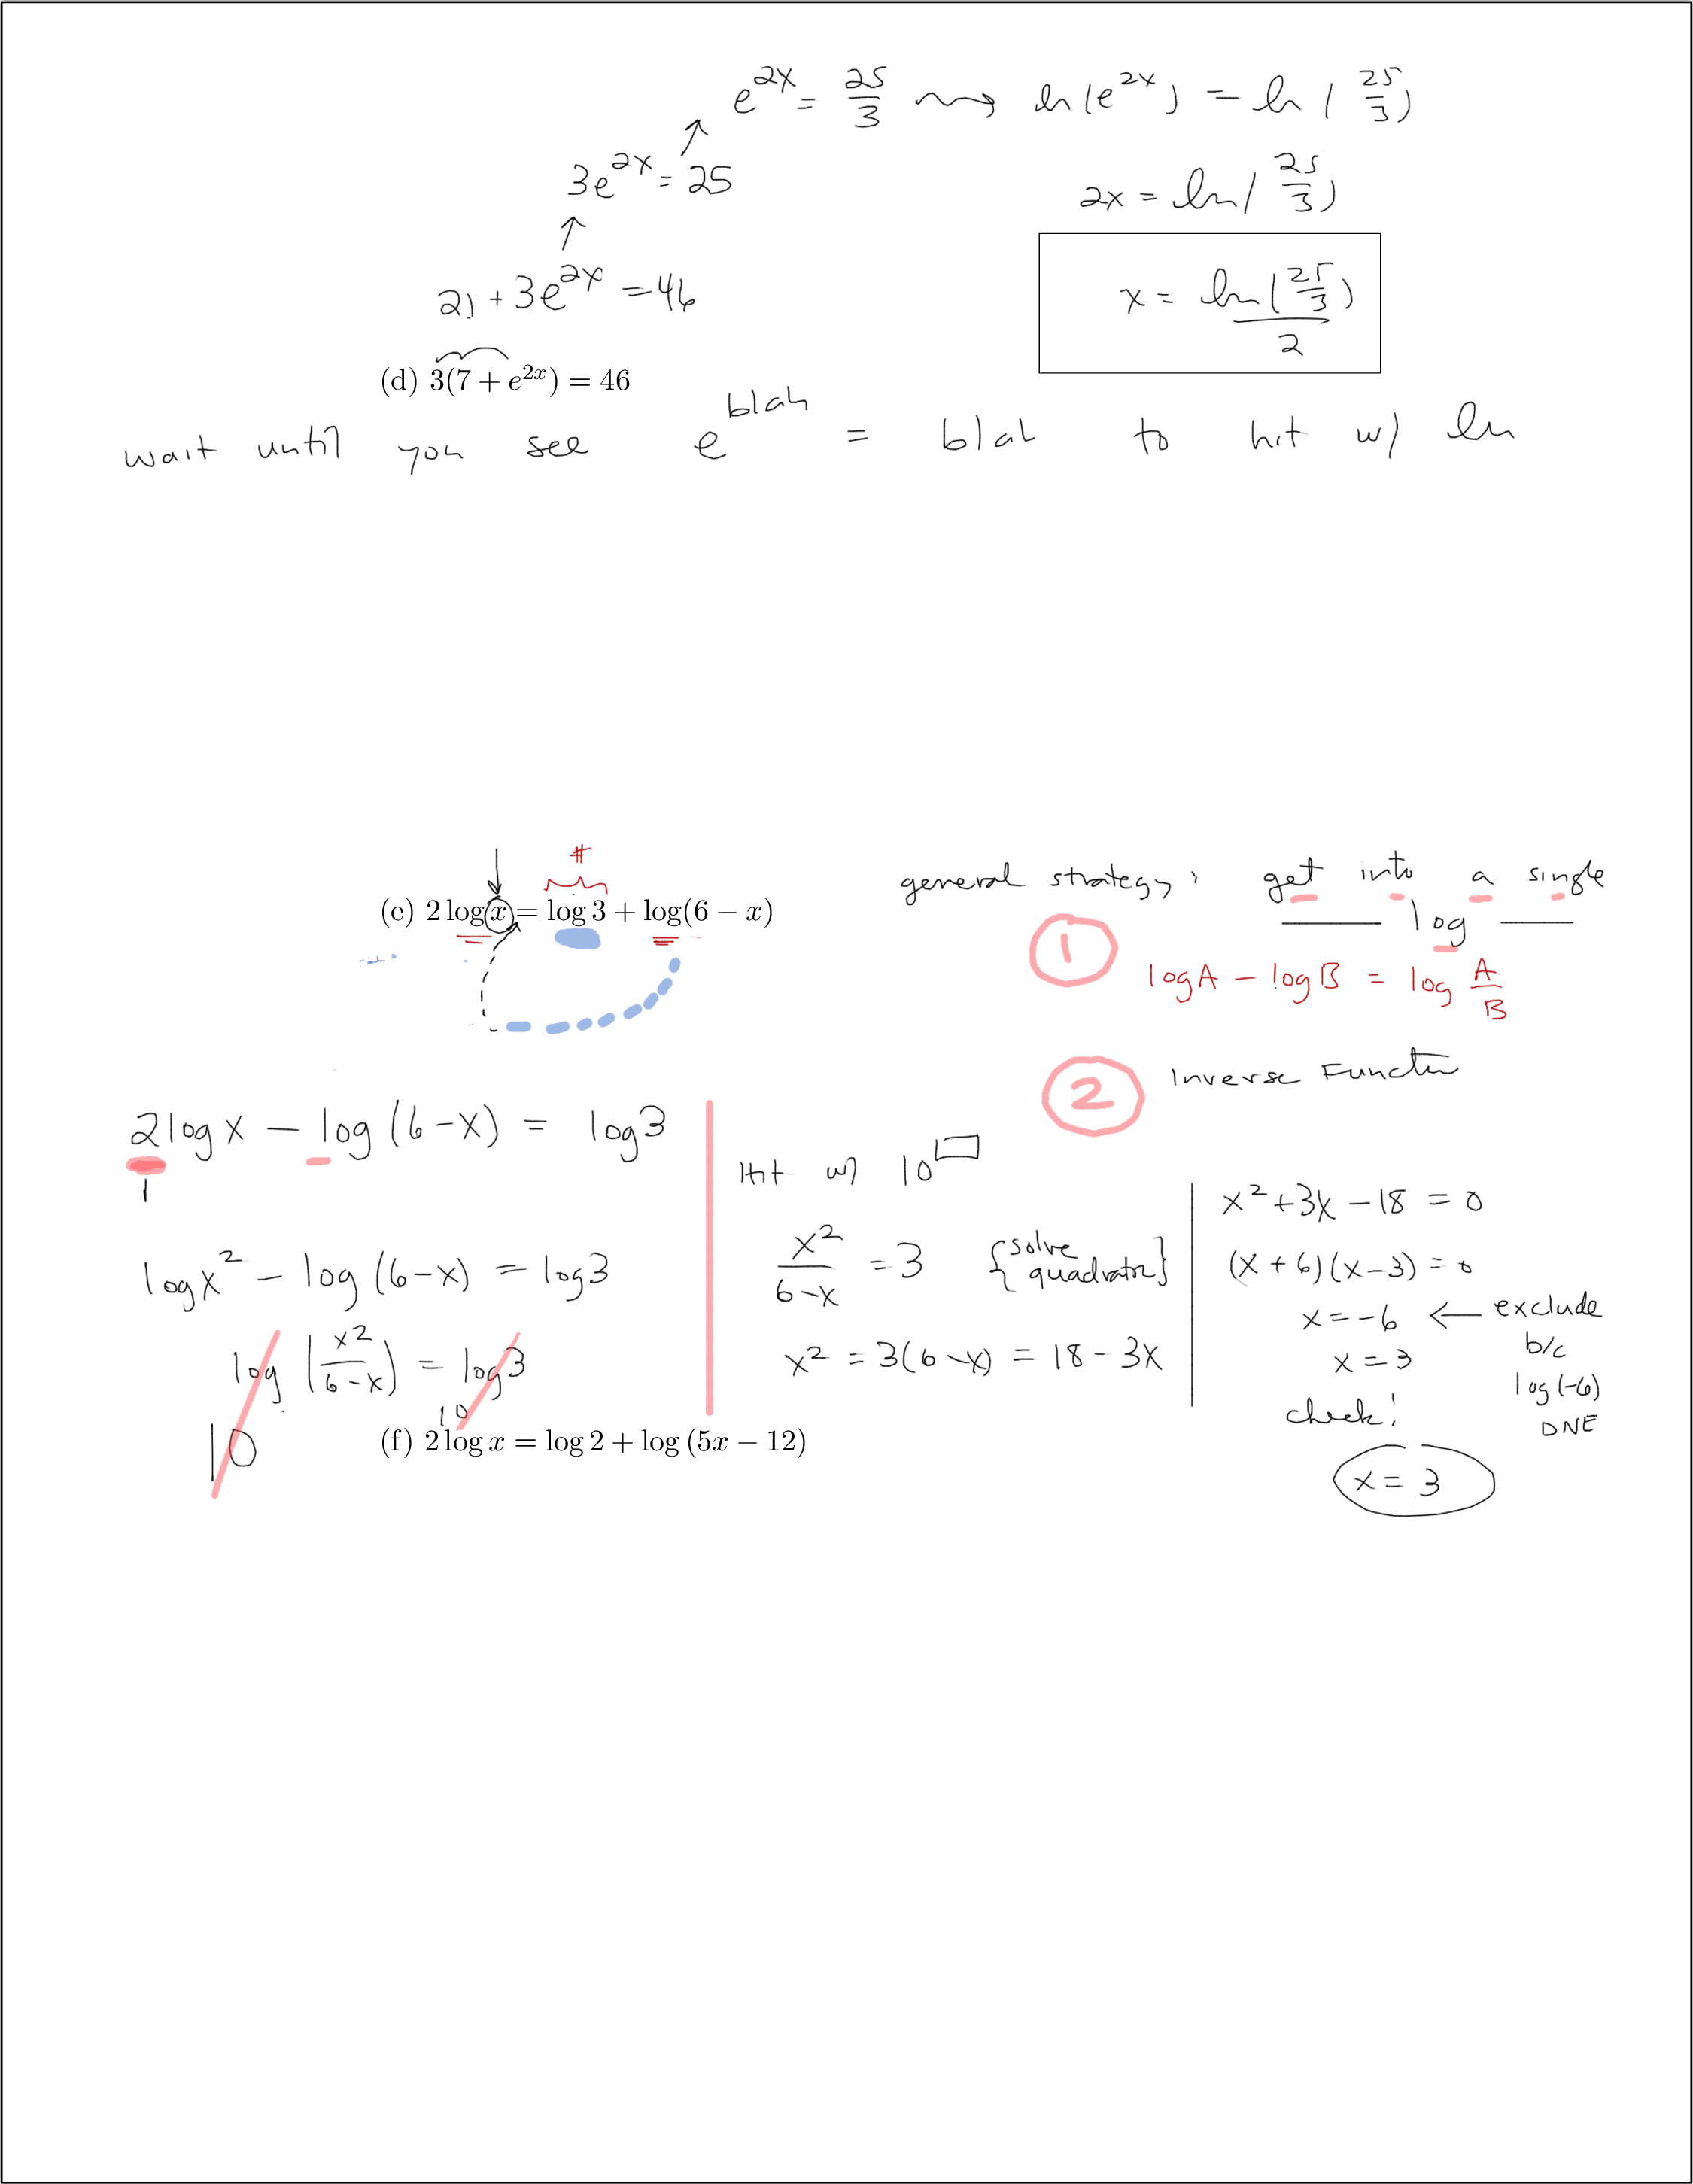 e^{2x} = 25/3 ⇝ ln(e^{2x}) = ln(25/3)
3e^{2x} = 25
2x = ln(25/3)
21 + 3e^{2x} = 46
x = ln(25/3)/2
(d) 3(7 + e^{2x}) = 46
wait until you see e^{blah} = blah to hit w/ ln
#
general strategy: get into a single
(e) 2 log x = log 3 + log(6 − x)
____ log ____
1
logA − logB = log A/B
2 Inverse Functn
2logx − log(6−x) = log3
1
Hit w/ 10^□
logx² − log(6−x) = log3
log(x²/(6−x)) = log3
10
10
x²/(6−x) = 3 {solve quadratic}
x² = 3(6−x) = 18 − 3x
x² + 3x − 18 = 0
(x+6)(x−3) = 0
x = −6 ← exclude
b/c
x = 3
log(−6)
check!
DNE
x = 3
(f) 2 log x = log 2 + log (5x − 12)